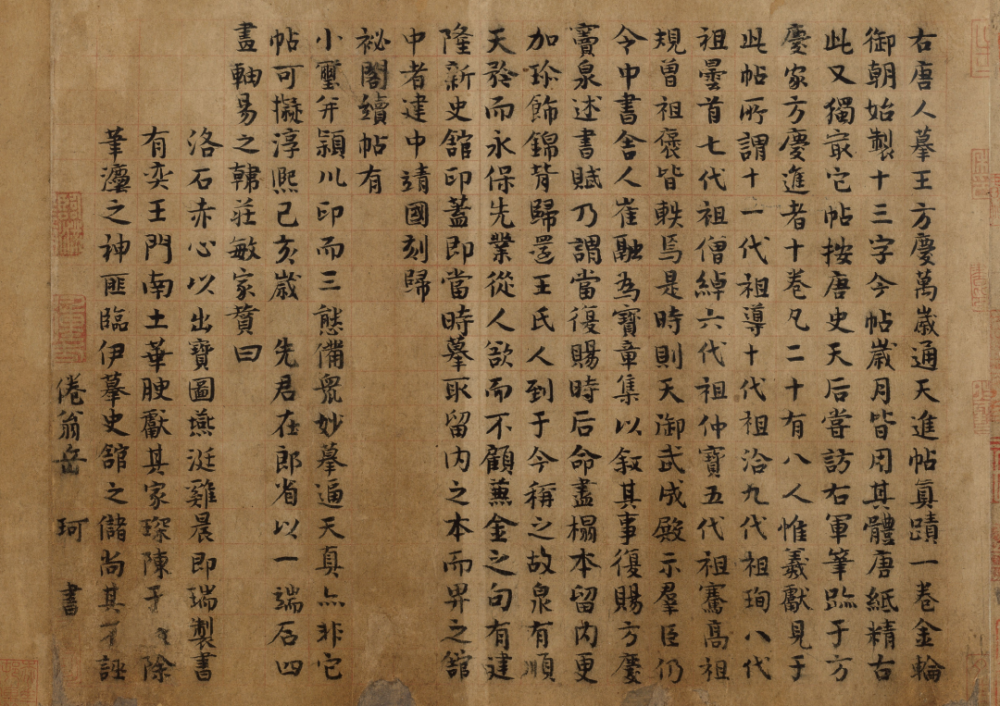 右唐人摹王方慶萬歲通天進帖真蹟一卷金輪
御朝始製十三字今帖歲月皆用其體唐紙精古
此又獨最它帖按唐史天后嘗訪右軍筆跡于方
慶家方慶進者十卷凡二十有八人惟羲獻見于
此帖所謂十一代祖導十代祖洽九代祖珣八代
祖曇首七代祖僧綽六代祖仲寶五代祖騫高祖
規曾祖褒皆軼焉是時則天御武成殿示羣臣仍
令中書舍人崔融為寶章集以叙其事復賜方慶
竇泉述書賦乃謂當復賜時后命盡榻本留內更
加珍飾錦背歸還王氏人到于今稱之故泉有順
天矜而永保先業從人欲而不顧兼金之句有建
隆新史館印蓋即當時摹取留內之本而畀之館
中者建中靖國刻歸
祕閣續帖有
小璽并潁川印而三態備衆妙摹逼天真亦非它
帖可擬淳熙己亥歲 先君在郎省以一端石四
畫軸易之韓莊敏家贊曰
洛石赤心以出寶圖燕涎雞晨即瑞製書
有奕王門南土華腴獻其家琛陳于 除
筆灋之神匪臨伊摹史館之儲尚其 誣
倦翁岳 珂 書